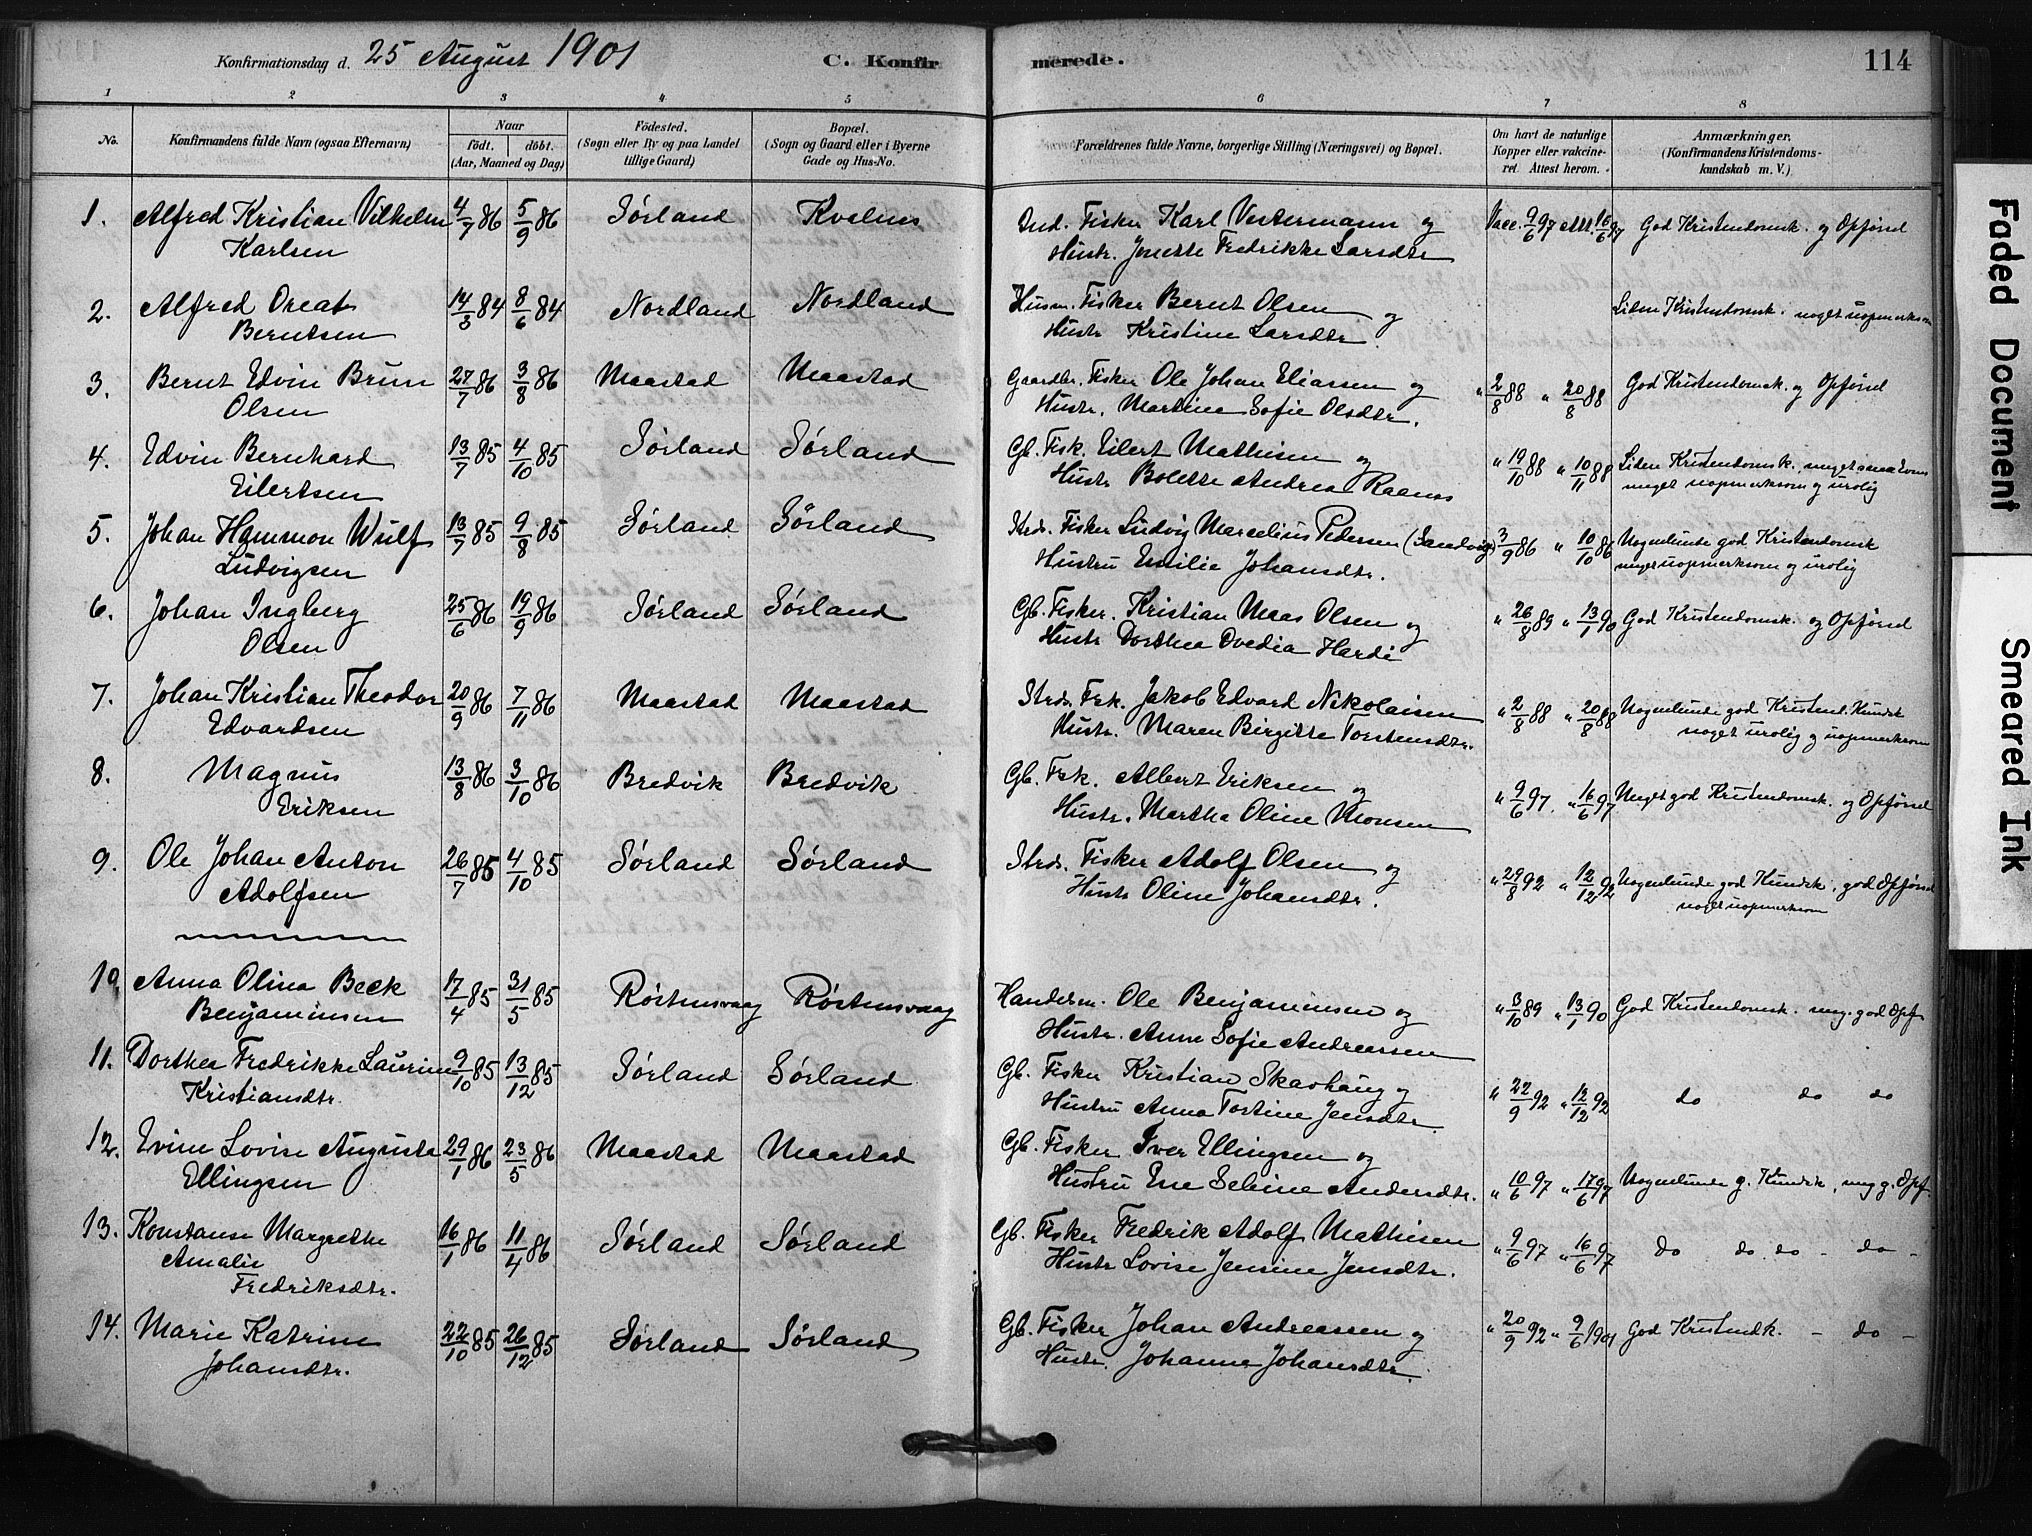 Konfirmationsdag d. 25 August 1901 C. Konfirmerede. 114
1 2 3 4 5 6 7 8
No. Konfirmandens fulde Navn (ogsaa Efternavn) Naar födt. döbt. (Aar, Maaned og Dag) Födested. (Sogn eller By og paa Landet tillige Gaard) Bopæl. (Sogn og Gaard eller i Byerne Gade og Hus-No. Forældrenes fulde Navne, borgerlige Stilling (Næringsvei) og Bopæl. Om havt de naturlige Kopper eller vakcineret. Attest herom. Anmærkninger. (Konfirmandens Kristendomskundskab m. V.)
1. Alfred Kristian Vilhelm 4/7 86 5/9 86 Sørland Kvalnes Ind. Fisker Karl Vestermann og Vacc. 9/6 97 Att. 16/6 97 God Kristendomsk. og Opførsel
Karlsen Hustr. Jonette Fredrikke Larsdtr
2. Alfred Oreat 14/3 84 8/6 84 Nordland Nordland Husm. Fisker Bernt Olsen og Liden Kristendomsk. noget uopmerksom
Berntsen Hustr Kristine Larsdtr
3. Bernt Edvin Brun 27/7 86 3/8 86 Maastad Maastad Gaardbr. Fisker Ole Johan Eliassen og " 2/8 88 " 20/8 88 God Kristendomsk. og Opførsel
Olsen Hustr. Martina Sofie Olsdtr.
4. Edvin Bernhard 13/7 85 4/10 85 Sørland Sørland Gb. Fisk. Eilert Mathisen og " 19/10 88 " 10/11 88 Liden Kristendomsk. meget
Eilertsen Hustr Bolette Andrea Raanes meget uopmerksom og urolig
5. Johan Hammon Wulf 13/7 85 9/8 85 Sørland Sørland Strds. Fisker Ludvig Marcelius Pedersen (Sandvig) " 3/9 86 " 10/10 86 Nogenlunde god Kristendomsk
Ludvigsen Hustru Emilie Johansdtr. meget uopmerksom og urolig
6. Johan Ingberg 25/6 86 19/9 86 Sørland Sørland Gb. Fisker. Kristian Maas Olsen og " 26/8 89 " 13/1 90 God Kristendomsk. og Opførsel
Olsen Hustr Dorthea Ovedia Hardi
7. Johan Kristian Theodor 20/9 86 7/11 86 Maastad Maastad Strds. Fsk. Jakob Edvard Nikolaisen " 2/8 88 " 20/8 88 Nogenlunde god Kristend. Kundsk
Edvardsen Hustr. Maren Birgitte Torstensdtr. noget urolig og uopmerksom
8. Magnus 13/8 86 3/10 86 Bredvik Bredvik Gb. Fsk. Albert Eriksen og " 9/6 97. " 16/6 97 Meget god Kristendomsk. og Opførsel
Eriksen Hustr. Martha Oline Monsen
9. Ole Johan Anton 26/7 85 4/10 85 Sørland Sørland Strds. Fisker Adolf Olsen og " 29/8 92 " 12/12 92 Nogenlunde god Kundsk, god Opførsel
Adolfsen Hustr Oline Johansdtr. noget uopmerksom
10. Anna Olina Beck 17/4 85 31/5 85 Røstensvaag Røstensvaag Handelsm. Ole Benjaminsen og " 3/10 89 " 13/1 90 God Kristendomsk. meg. god Opf
Benjaminsen Hustr. Anne Sofie Andreassen
11. Dorthea Fredrikke Laurine 9/10 85 13/12 85 Sørland Sørland Gb. Fisker Kristian Skavhaug og " 22/9 92 " 12/12 92 do do do
Kristiansdtr. Hustru Anna Tostine Jensdtr.
12. Evine Lovise Augusta 29/1 86 23/5 86 Maastad Maastad Gb. Fisker Iver Ellingsen og
Ellingsen Hustru Ene Seline Andersdtr. " 10/6 97 " 17/6 97 Nogenlunde g. Kundsk, meg g. Opf.
13. Konstanse Margrethe 16/1 86 11/4 86 Sørland Sørland Gb. Fisker Fredrik Adolf Mathisen " 9/6 97 " 16/6 97 do do do - do -
Amalie Hustr Lovise Jensine Jensdtr.
Fredriksdtr.
14. Marie Katrine 22/10 85 26/12 85 Sørland Sørland Gb. Fisker Johan Andreassen og " 20/9 92 " 9/6 1901 God Kristendk. - do -
Johansdtr. Hustr. Johanna Johansdtr.
Faded Document
Smeared Ink